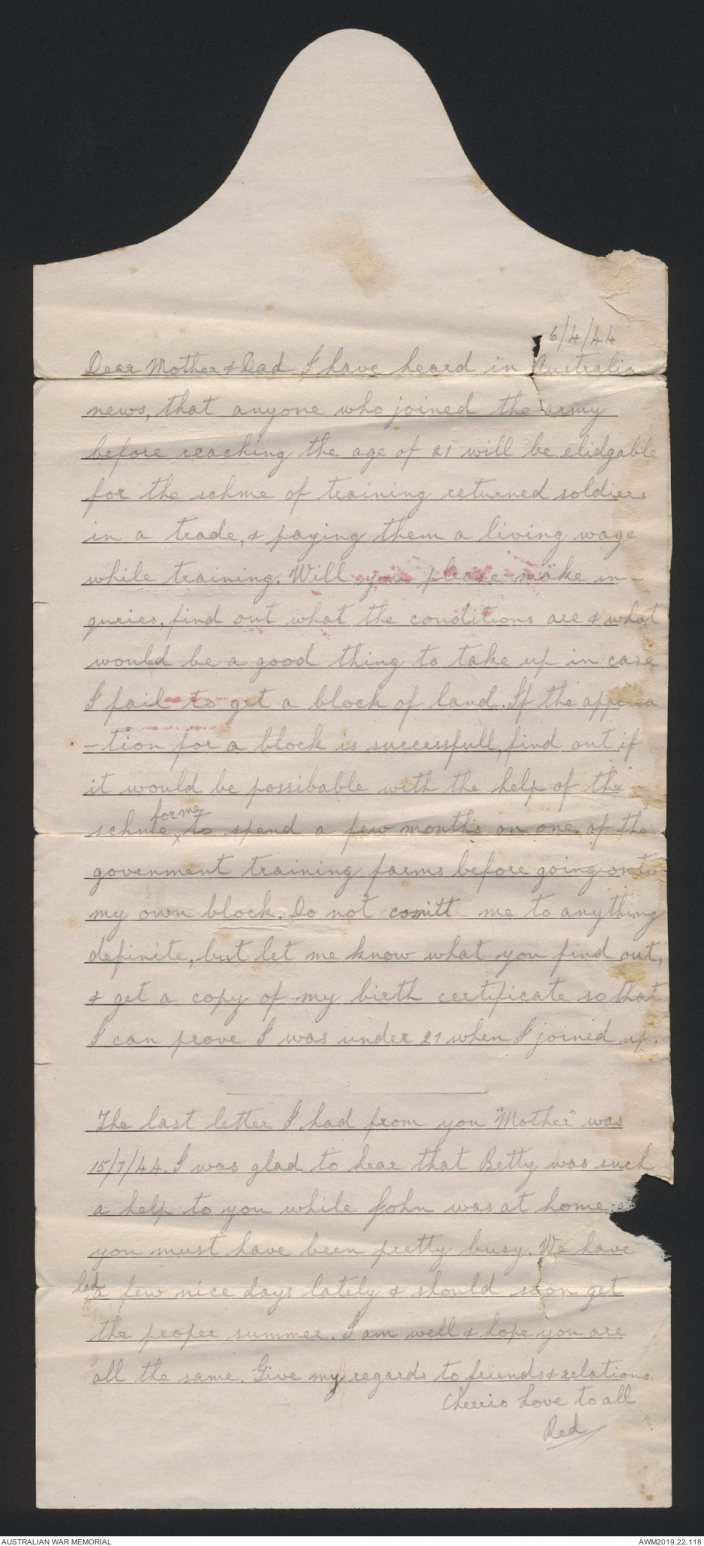 6/4/44
Dear Mother & Dad I have heard in Australia
news, that anyone who joined the army
before reaching the age of 21 will be elidgable
for the schme of training returned soldiers
in a trade, & paying them a living wage
while training. Will you please make in
quries, find out what the conditions are & what
would be a good thing to take up in case
I fail to get a block of land. If the
-tion for a block is successfull, find out if
it would be possibable with the help of the
schme for me to spend a few months on one of the
govenment training farms before going onto
my own block. Do not comitt me to anything
definite, but let me know what you find out,
& get a copy of my birth certificate so that
I can prove I was under 21 when I joined up.
The last letter I had from you "Mother" was
15/1/44. I was glad to hear that Betty was such
a help to you while John was at home
you must have been pretty busy. We have
had a few nice days lately & should soon get
the proper summer. I am well & hope you are
all the same. Give my regards to friends & relations.
Cheerio Love to all
Red
AUSTRALIAN WAR MEMORIAL
AWM2019.22.118